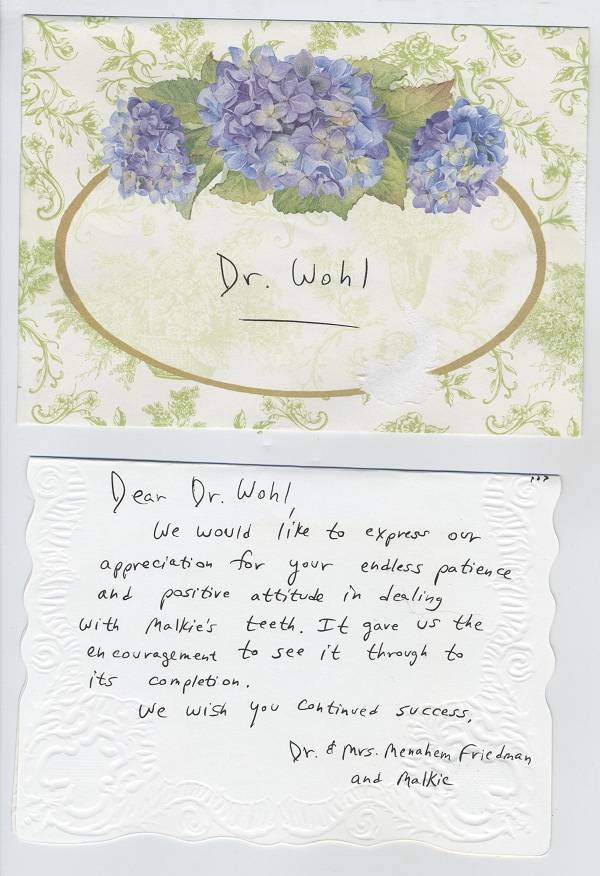 Dr. Wohl
בס"ד
Dear Dr. Wohl,
We would like to express our
appreciation for your endless patience
and positive attitude in dealing
with Malkie's teeth. It gave us the
encouragement to see it through to
its completion.
We wish you continued success.
Dr. & Mrs. Menahem Friedman
and Malkie